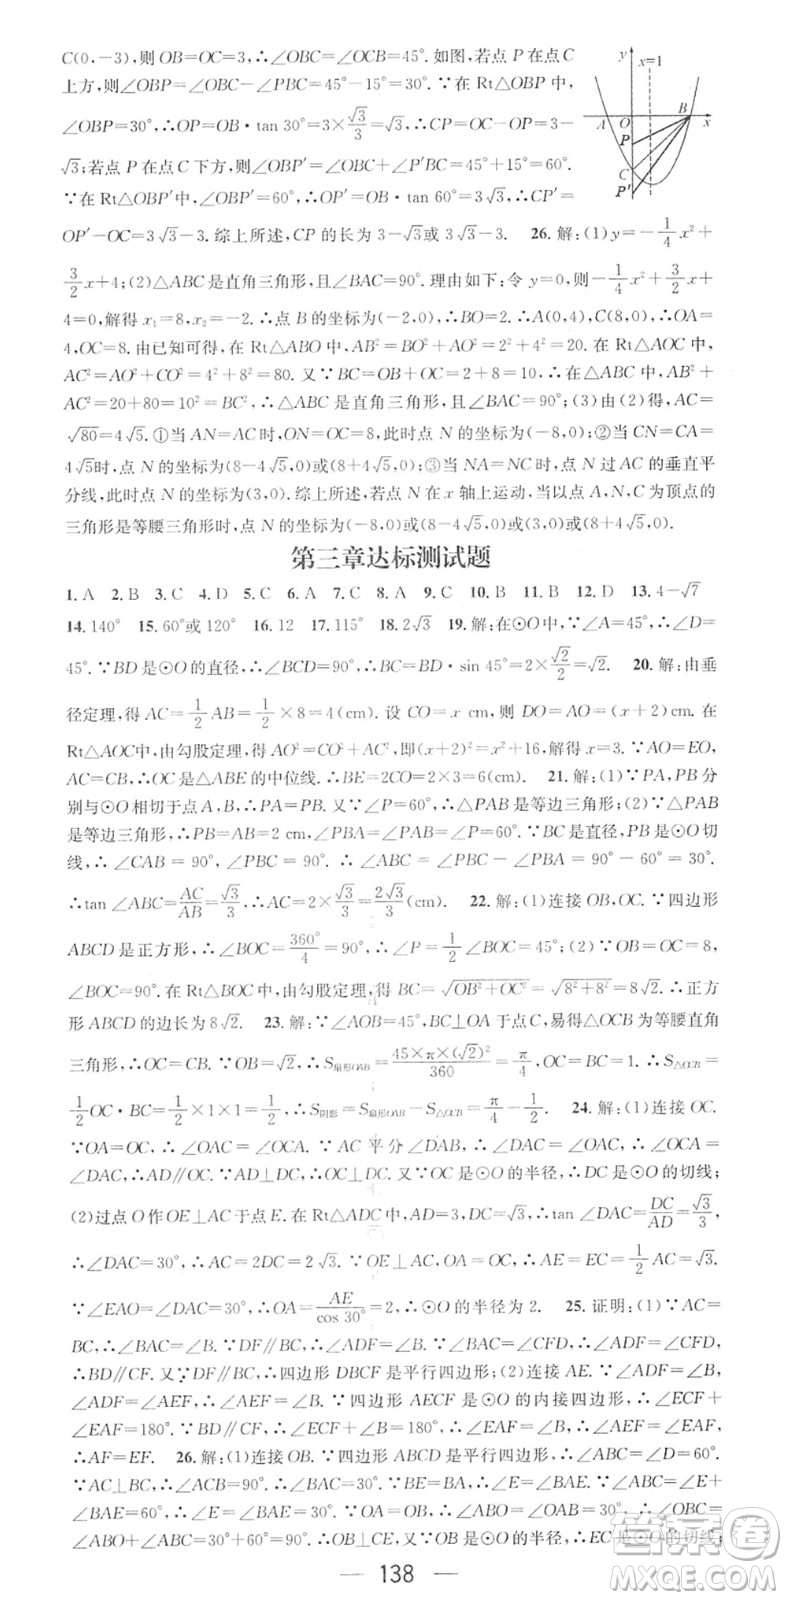 C(0,-3),则OB=OC=3,∴∠OBC=∠OCB=45°.如图,若点P在点C
上方,则∠OBP=∠OBC-∠PBC=45°-15°=30°.∵在Rt△OBP中,
∠OBP=30°,∴OP=OB·tan 30°=3×√3/3=√3,∴CP=OC-OP=3-
√3;若点P在点C下方,则∠OBP′=∠OBC+∠P′BC=45°+15°=60°.
∵在Rt△OBP′中,∠OBP′=60°,∴OP′=OB·tan 60°=3√3,∴CP′=
OP′-OC=3√3-3.综上所述,CP的长为3-√3或3√3-3. 26.解:(1)y=-1/4x²+
y x=1 A O B x P C P′
3/2x+4;(2)△ABC是直角三角形,且∠BAC=90°.理由如下:令y=0,则-1/4x²+3/2x+
4=0,解得x₁=8,x₂=-2.∴点B的坐标为(-2,0),∴BO=2.∴A(0,4),C(8,0),∴OA=
4,OC=8.由已知可得,在Rt△ABO中,AB²=BO²+AO²=2²+4²=20.在Rt△AOC中,
AC²=AO²+CO²=4²+8²=80.又∵BC=OB+OC=2+8=10,∴在△ABC中,AB²+
AC²=20+80=10²=BC²,∴△ABC是直角三角形,且∠BAC=90°;(3)由(2)得,AC=
√80=4√5.①当AN=AC时,ON=OC=8,此时点N的坐标为(-8,0);②当CN=CA=
4√5时,点N的坐标为(8-4√5,0)或(8+4√5,0);③当NA=NC时,点N为AC的垂直平
分线,此时点N的坐标为(3,0).综上所述,若点N在x轴上运动,当以点A,N,C为顶点的
三角形是等腰三角形时,点N的坐标为(-8,0)或(8-4√5,0)或(3,0)或(8+4√5,0).
第三章达标测试题
1.A 2.B 3.C 4.D 5.C 6.A 7.C 8.C 9.C 10.B 11.B 12.D 13.4-√7
14.140° 15.60°或120° 16.12 17.115° 18.2√3 19.解:在⊙O中,∵∠A=45°,∴∠D=
45°.∵BD是⊙O的直径,∴∠BCD=90°,∴BC=BD·sin 45°=2×√2/2=√2. 20.解:由垂
径定理,得AC=1/2AB=1/2×8=4(cm).设CO=x cm,则DO=AO=(x+2)cm.在
Rt△AOC中,由勾股定理,得AO²=CO²+AC²,即(x+2)²=x²+16,解得x=3.∵AO=EO,
AC=CB,∴OC是△ABE的中位线.∴BE=2CO=2×3=6(cm). 21.解:(1)∵PA,PB分
别与⊙O相切于点A,B,∴PA=PB.又∵∠P=60°,∴△PAB是等边三角形;(2)∵△PAB
是等边三角形,∴PB=AB=2 cm,∠PBA=∠PAB=60°.∵BC是直径,PB是⊙O切
线,∴∠CAB=90°,∠PBC=90°,∴∠ABC=∠PBC-∠PBA=90°-60°=30°.
∴tan∠ABC=AC/AB=√3/3,∴AC=2×√3/3=2√3/3(cm). 22.解:(1)连接OB,OC.∵四边形
ABCD是正方形,∴∠BOC=360°/4=90°,∴∠P=1/2∠BOC=45°;(2)∵OB=OC=8,
∠BOC=90°.在Rt△BOC中,由勾股定理,得BC=√(OB²+OC²)=√(8²+8²)=8√2.∴正方
形ABCD的边长为8√2. 23.解:∵∠AOB=45°,BC⊥OA于点C,易得△OCB为等腰直角
三角形,∴OC=CB.∵OB=√2,∴S扇形OAB=45×π×(√2)²/360=π/4,OC=BC=1.∴S△OCB=
1/2OC·BC=1/2×1×1=1/2,∴S阴影=S扇形OAB-S△OCB=π/4-1/2. 24.解:(1)连接OC.
∵OA=OC,∴∠OAC=∠OCA.∵AC平分∠DAB,∴∠DAC=∠OAC,∴∠OCA=
∠DAC,∴AD∥OC.∵AD⊥DC,∴OC⊥DC.又OC是⊙O的半径,∴DC是⊙O的切线;
(2)过点O作OE⊥AC于点E.在Rt△ADC中,AD=3,DC=√3,∴tan∠DAC=DC/AD=√3/3,
∴∠DAC=30°,∴AC=2DC=2√3.∵OE⊥AC,OA=OC,∴AE=EC=1/2AC=√3.
∵∠EAO=∠DAC=30°,∴OA=AE/cos 30°=2,∴⊙O的半径为2. 25.证明:(1)∵AC=
BC,∴∠BAC=∠B.∵DF∥BC,∴∠ADF=∠B.又∠BAC=∠CFD,∴∠ADF=∠CFD,
∴BD∥CF.又∵DF∥BC,∴四边形DBCF是平行四边形;(2)连接AE.∵∠ADF=∠B,
∠ADF=∠AEF,∴∠AEF=∠B.∵四边形AECF是⊙O的内接四边形,∴∠ECF+
∠EAF=180°.∵BD∥CF,∴∠ECF+∠B=180°,∴∠EAF=∠B,∴∠AEF=∠EAF,
∴AF=EF. 26.解:(1)连接OB.∵四边形ABCD是平行四边形,∴∠ABC=∠D=60°.
∵AC⊥BC,∴∠ACB=90°,∴∠BAC=30°.∵BE=AB,∴∠E=∠BAE.∵∠ABC=∠E+
∠BAE=60°,∴∠E=∠BAE=30°.∵OA=OB,∴∠ABO=∠OAB=30°,∴∠OBC=
∠ABO+∠ABC=30°+60°=90°.∴OB⊥CE,又∵OB是⊙O的半径,∴EC是⊙O的切线;
138
答案圈
MXQE.COM